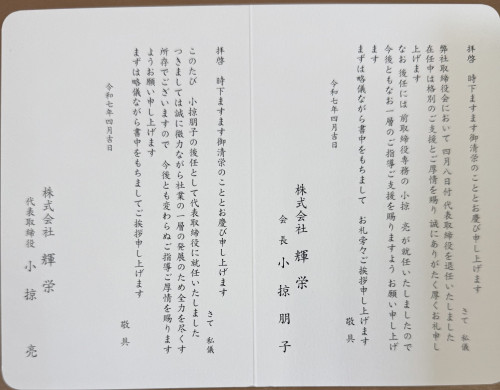 拝啓 時下ますます御清栄のこととお慶び申し上げます
さて 私儀
弊社取締役会において 四月八日付 代表取締役を退任いたしました
在任中は格別のご支援とご厚情を賜り 誠にありがたく厚くお礼申し
上げます
なお 後任には 前取締役専務の 小掠 亮 が就任いたしましたので
今後ともなお一層のご指導ご支援を賜りますよう お願い申し上げ
ます
まずは略儀ながら書中をもちまして お礼旁々ご挨拶申し上げます
敬具
令和七年四月吉日
株式会社 輝栄
会長 小掠 朋子
拝啓 時下ますます御清栄のこととお慶び申し上げます
さて 私儀
このたび 小掠朋子の後任として代表取締役に就任いたしました
つきましては誠に微力ながら社業の一層の発展のため全力を尽くす
所存でございますので 今後とも変わらぬご指導ご厚情を賜ります
ようお願い申し上げます
まずは略儀ながら書中をもちましてご挨拶申し上げます
敬具
令和七年四月吉日
株式会社 輝栄
代表取締役 小掠 亮